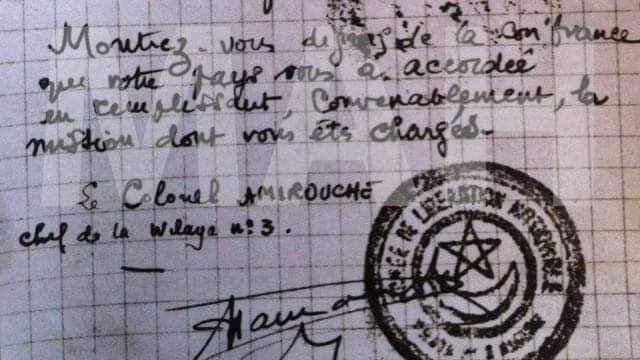 Montrez-vous dignes de la confiance
que votre pays vous a accordeé
en remplissant, Convenablement, la
mission dont vous êts chargés.
Le Colonel AMIROUCHE
chef de la Wilaya n:3.
DE LIBERATION NATIONALE